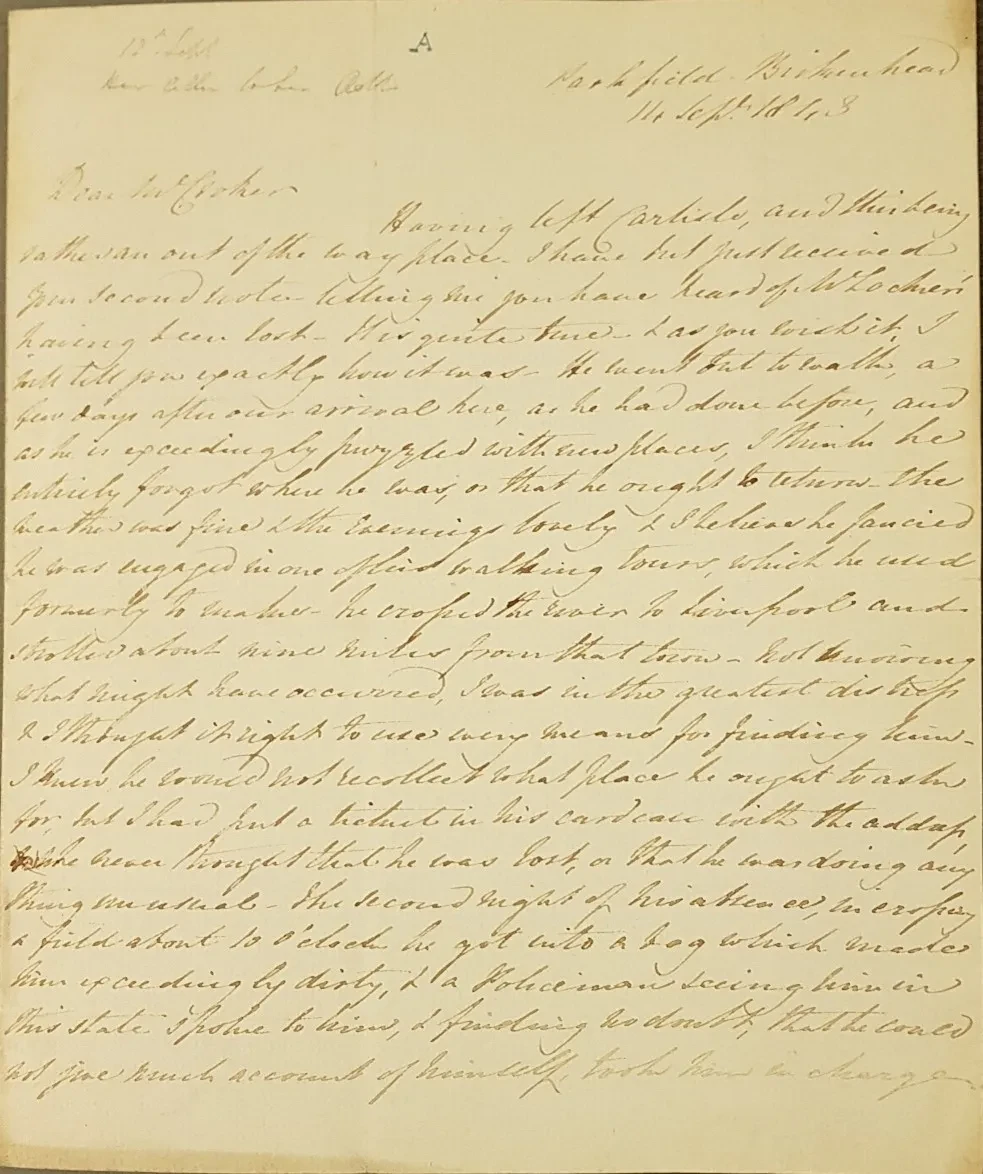 A
12th Sept
Parkfield - Birkenhead
14 Septr 1843
Dear Mr Croker
Having left Carlisle, and this being
rather an out of the way place - I have but just received
your second note - telling me you have heard of Mr Lockier's
having been lost - It is quite true - & as you wish it, I
will tell you exactly how it was - He went out to walk, a
few days after our arrival here, as he had done before, and
as he is exceedingly puzzled with new places, I think he
entirely forgot where he was, or that he ought to return - the
weather was fine & the Evenings lovely & I believe he fancied
he was engaged in one of his walking tours, which he used
formerly to make - he crossed the river to Liverpool and
strolled about nine miles from that town - Not knowing
what might have occurred, I was in the greatest distress
& I thought it right to use every means for finding him -
I knew he would not recollect what place he ought to ask
for, but I had put a ticket in his card case with the address,
he never thought that he was lost, or that he was doing any
thing unusual - The second night of his absence, in crossing
a field about 10 o'clock he got into a bog which made
him exceedingly dirty, & a Policeman seeing him in
this state spoke to him, & finding no doubt, that he could
not give much account of himself, took him in charge